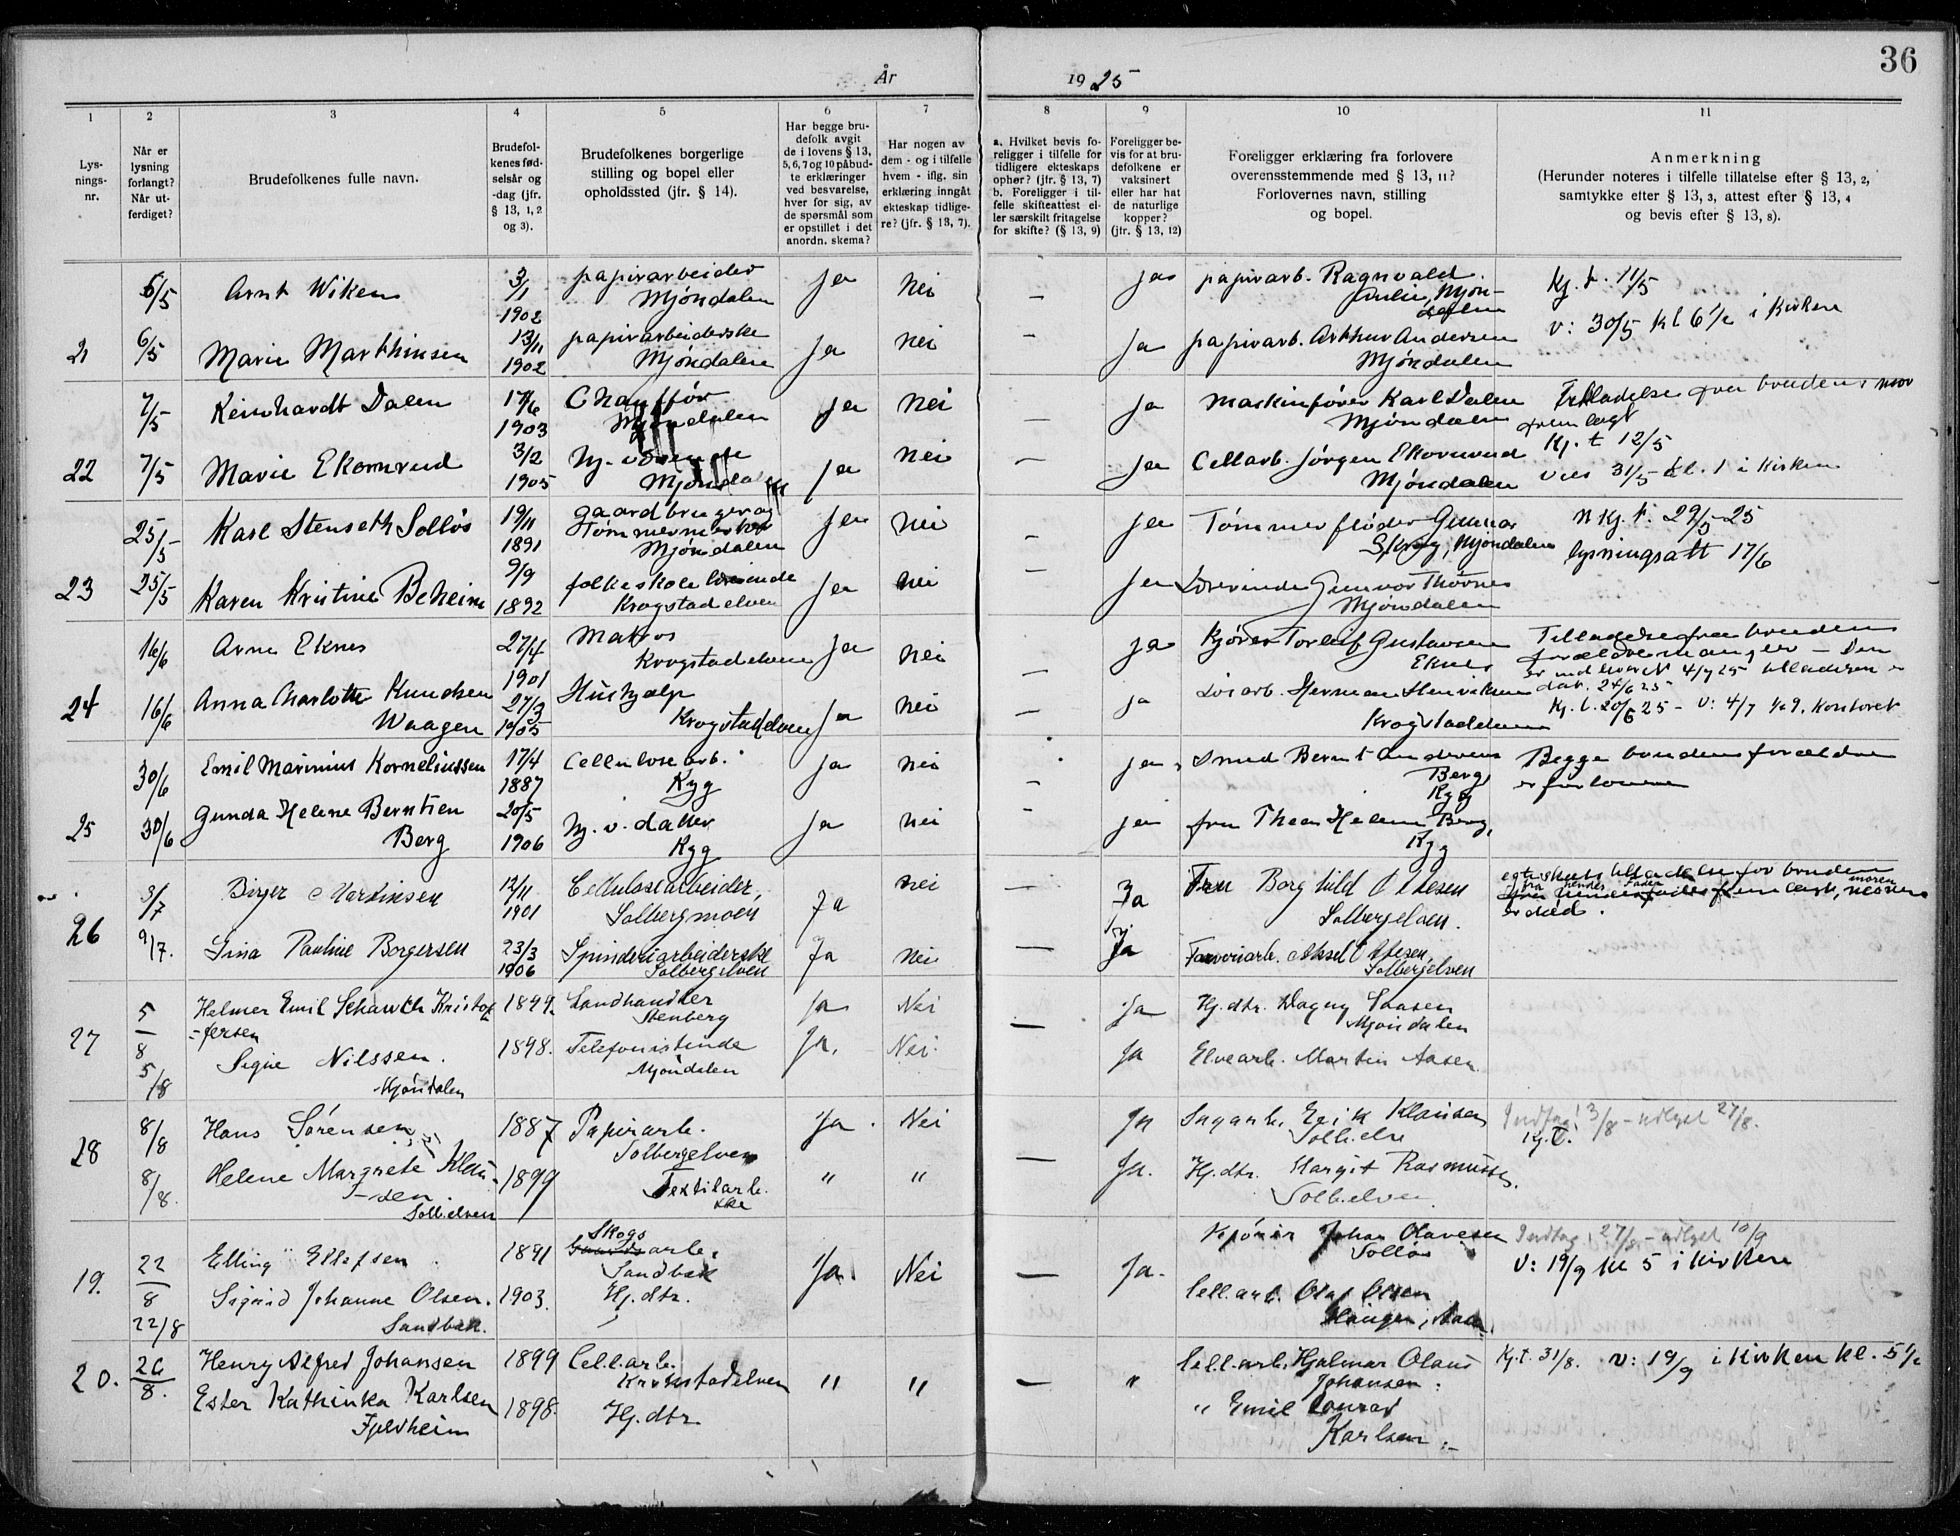 36
År 1925
1 2 3 4 5 6 7 8 9 10 11
Lys-
nings-
nr.
Når er
lysning
forlangt?
Når ut-
ferdiget?
Brudefolkenes fulle navn.
Brudefol-
kenes fød-
selsår og
-dag (jfr.
§ 13, 1, 2
og 3).
Brudefolkenes borgerlige
stilling og bopel eller
opholdssted (jfr. § 14).
Har begge bru-
defolk avgit
de i lovens § 13,
5, 6, 7 og 10 påbud-
te erklæringer
ved besvarelse,
hver for sig, av
de spørsmål som
er opstillet i det
anordn. skema?
Har nogen av
dem - og i tilfelle
hvem - iflg. sin
erklæring inngått
ekteskap tidlige-
re? (jfr. § 13, 7).
a. Hvilket bevis fo-
religger i tilfelle for
tidligere ekteskaps
ophør? (jfr. § 13, 7)
b. Foreligger i til-
felle skifteattest el-
ler særskilt fritagelse
for skifte? (§ 13, 9)
Foreligger be-
vis for at bru-
defolkene er
vaksinert
eller har hat
de naturlige
kopper?
(jfr. § 13, 12)
Foreligger erklæring fra forlovere
overensstemmende med § 13, 11?
Forlovernes navn, stilling
og bopel.
Anmerkning
(Herunder noteres i tilfelle tillatelse efter § 13, 2,
samtykke efter § 13, 3, attest efter § 13, 4
og bevis efter § 13, 8).
6/5 Arnt Wiken 3/1 1902 papirarbeider Mjøndalen Ja Nei — Ja papirarb. Ragnvald Kj. t. 11/5
21 6/5 Marie Marthinsen 13/11 1902 papirarbeiderske Mjøndalen Ja Nei — Ja papirarb. Arthur Andersen Mjøndalen V: 30/5 Kl 6 1/2 i Kirken
7/5 Reinhardt Dalen 17/6 1903 Chauffør Mjøndalen Ja Nei — Ja Maskinfører Karl Dalen Mjøndalen fra brudens mor fremlagt
22 7/5 Marie Ekornrud 3/2 1905 Mjøndalen Ja Nei — Ja Cellarb. Jørgen Ekornrud Mjøndalen Kj. t 12/5 vies 31/5 - kl. 1 i Kirken
25/5 Karl Stenseth Solløs 19/11 1891 gaardbruger og Tømmermester Mjøndalen Ja Nei — Ja Tømmerfløder Gunnar Skrog, Mjøndalen N Kj. t. 29/5-25
23 25/5 Karen Kristine Beheim 9/9 1892 folkeskolelærerinde Krogstadelven Ja Nei — Ja Lærerinde Gunvor Mjøndalen lysningsatt 17/6
16/6 Arne Eknes 27/4 1901 Matros Krogstadelven Ja Nei ja Kjører Torleif Gustavsen Eknes Tilladelse fra brudens forældre mangler - Den er indleveret 4/7 25
24 16/6 Anna Charlotte Knudsen Waagen 27/3 1905 Hushjælp Krogstadelven Ja Nei — ja Herman Henriksen Krogstadelven dat. 24/6 25 Kj. t. 20/6 25 - V: 4/7 Kontoret
30/6 Emil Marinius Korneliussen 17/4 1887 Cellulosearb. Ryg Ja Nei — ja Smed Bernt Andersen Berg, Ryg Begge brudens forældre er forlovere
25 30/6 Gunda Helene Berntsen Berg 20/5 1906 hj. v. datter Ryg Ja Nei — ja fru Thea Helene Berg, Ryg
3/7 Birger Martinsen 12/11 1901 Cellulosearbeider, Solbergmoen Ja Nei — Ja Fru Borghild Ottesen Solbergelven. for bruden fra hendes Fader fremlagt, moren er død.
26 9/7. Lina Pauline Borgersen 23/3 1906 Spinderiarbeiderske Solbergelven Ja Nei — Ja Farveriarb. Aksel Ottesen, Solbergelven
27 5/8 Helmer Emil Schawth Kristof-fersen 1899. Landhandler Stenberg Ja Nei — Ja Hj. dtr. Dagny Aasen Mjøndalen
5/8 Signe Nilssen. Mjøndalen 1898. Telefonistinde Mjøndalen Ja. Nei. Ja Elvearb. Martin Aasen
28 8/8 Hans Sørensen 1887 Papirarb. Solbergelven Ja. Nei — Ja Sagarb. Erik Klausen Solb.elve Indtag! 3/8 - utlyst 27/8. Kj. t.
8/8. Helene Margrete Klau-sen. Solb.elven 1899 Textilarb.ske " " Ja. Hj. dtr. Margit Rasmussen, Solb.elven
19. 22/8 Elling Ellefsen 1891 Skogsarb. Sandbæk Ja. Nei — Ja. Kjører Johan Olavesen Solløs Indtag! 27/8 - utlyst 10/9
22/8 Sigrid Johanne Olsen. Sandbæk. 1903. Hj. dtr. Cell.arb. Olaf Olsen V: 19/9 kl 5 i Kirken
20. 26/8. Henry Alfred Johansen 1899 Cell.arb. Krokstadelven " " — " Cell.arb. Hjalmar Olaus Johansen. Kj.t. 31/8. V: 19/9 i Kirken kl. 5 1/2
Ester Kathinka Karlsen Fjeldheim 1898. Hj. dtr. " Emil Konrad Karlsen.